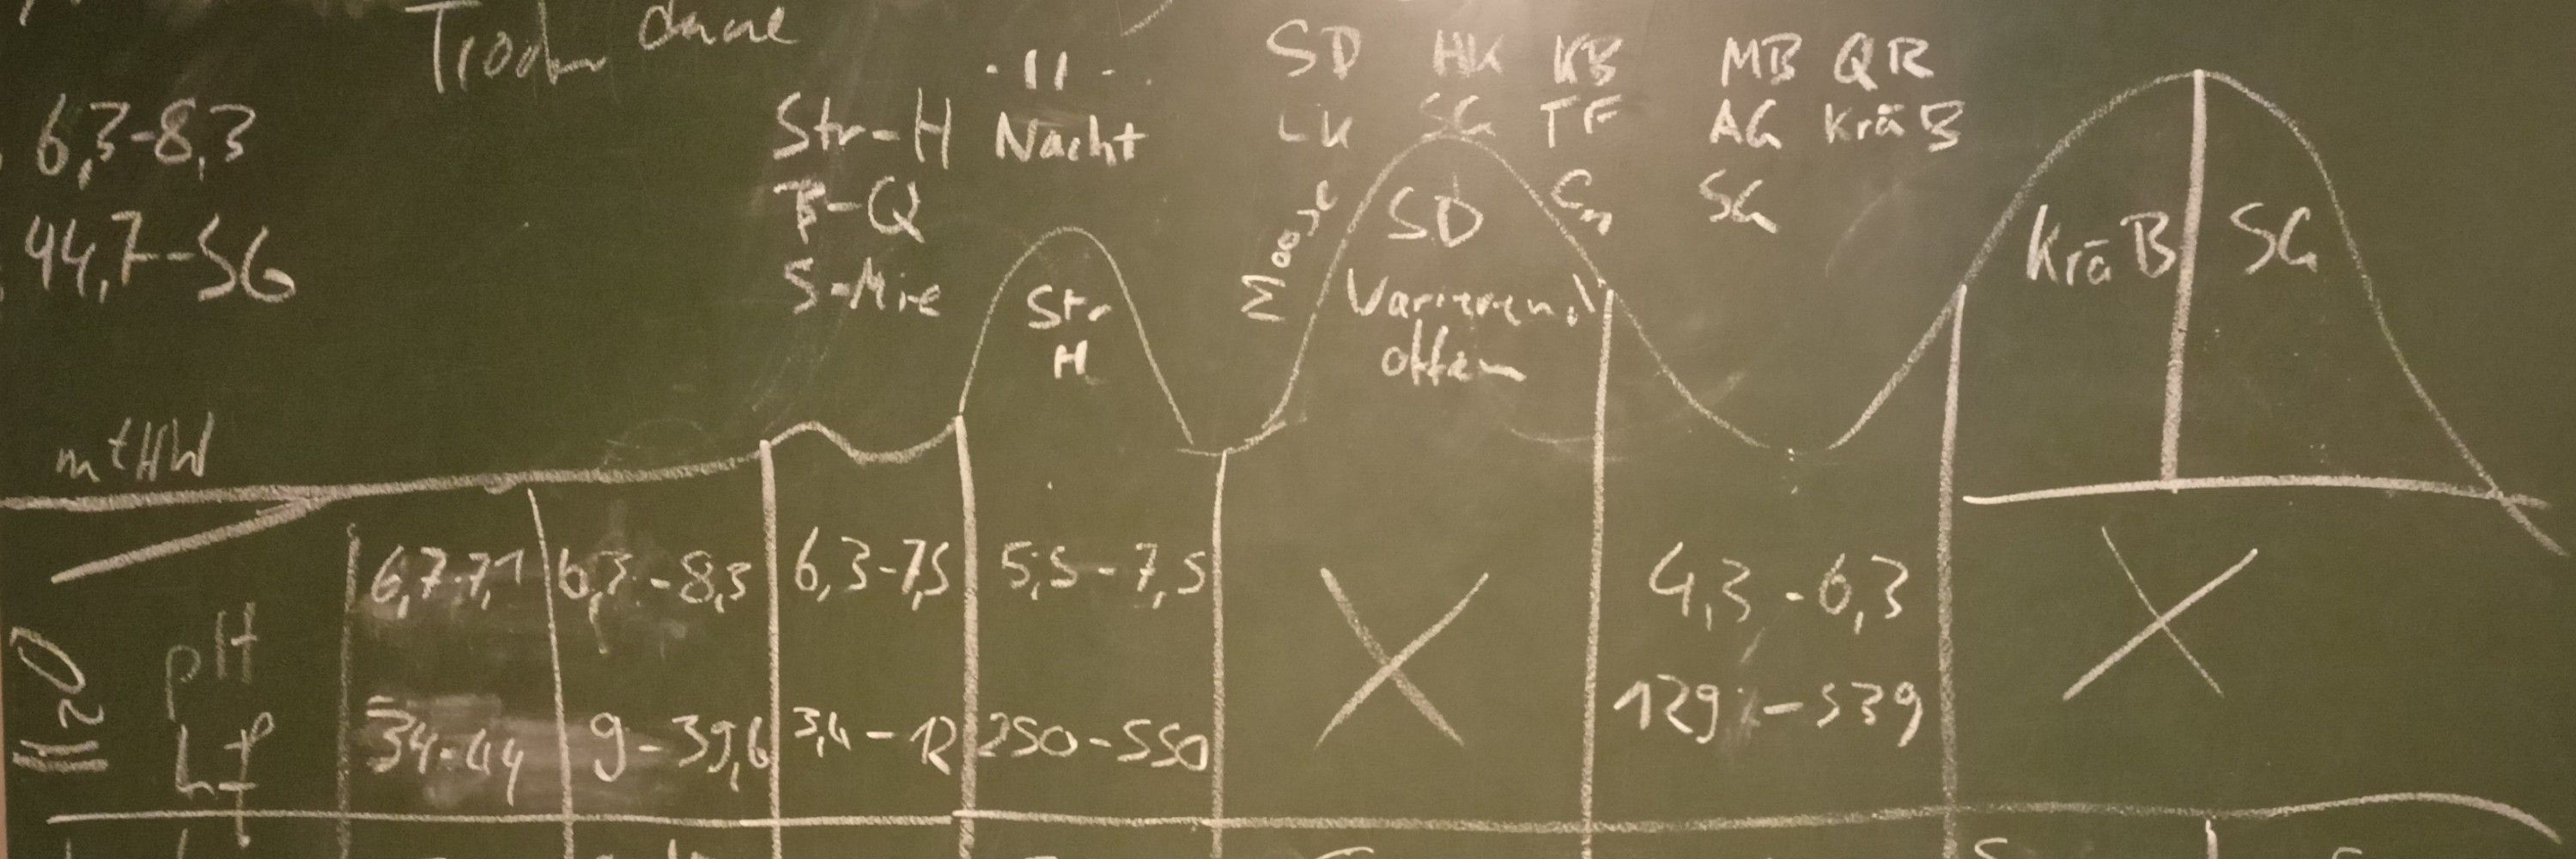 6,3-8,3
44,7-56
Str-H
T-Q
S-Mie
-11-
Nacht
Str
H
SD HK KB
LK SG TF
Moose
SD
Varierend
offen
MB QR
AG KräB
SG
KräB SG
mtHW
H2O
pH 6,7-7,1 6,3-8,3 6,3-7,5 5,5-7,5 4,3-6,3
Lf 34-44 9-39,6 3,4-12 250-550 129-539